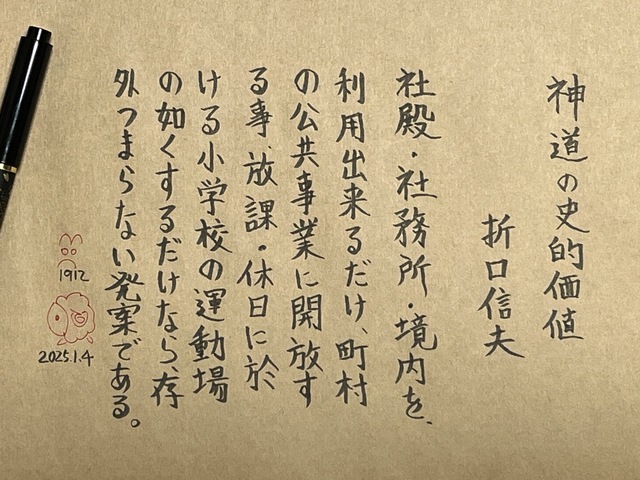 神道の史的価値
折口信夫
社殿・社務所・境内を、
利用出来るだけ、町村
の公共事業に開放す
る事、放課・休日に於
ける小学校の運動場
の如くするだけなら、存
外つまらない発案である。
1912
2025.1.4